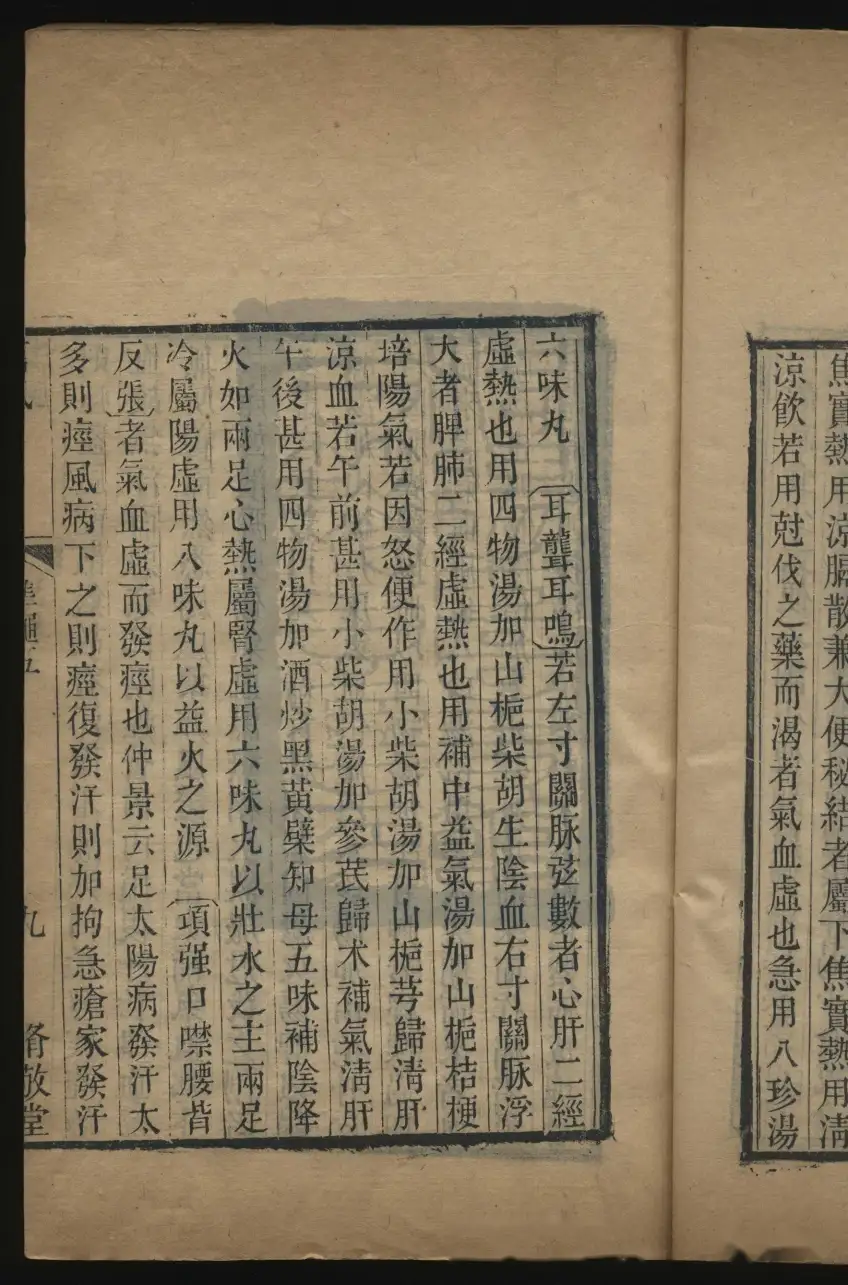 焦實熱用涼膈散兼大便秘結者屬下焦實熱用淸
涼飮若用尅伐之藥而渴者氣血虛也急用八珍湯
六味丸 耳聾耳鳴若左寸關脉弦數者心肝二經
虛熱也用四物湯加山梔柴胡生陰血右寸關脈浮
大者脾肺二經虛熱也用補中益氣湯加山梔桔梗
培陽氣若因怒便作用小柴胡湯加山梔芎歸清肝
涼血若午前甚用小柴胡湯加參芪歸术補氣淸肝
午後甚用四物湯加酒炒黑黃檗知母五味補陰降
火如兩足心熱屬腎虛用六味丸以壯水之主兩足
冷屬陽虛用八味丸以益火之源 項强口噤腰背
反張者氣血虛而發痙也仲景云足太陽病發汗太
多則痙風病下之則痙復發汗則加拘急瘡家發汗
準繩五
九
脩敬堂